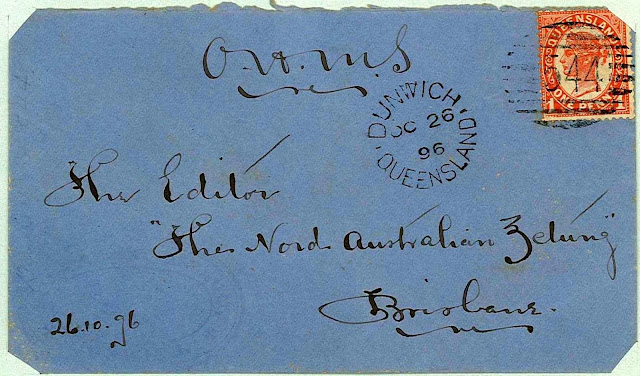 O.H.M.S
QUEENSLAND
44
ONE PENNY
1 1
DUNWICH
OC 26
96
QUEENSLAND
The Editor
"The Nord Australian Zetung"
Brisbane.
26.10.96